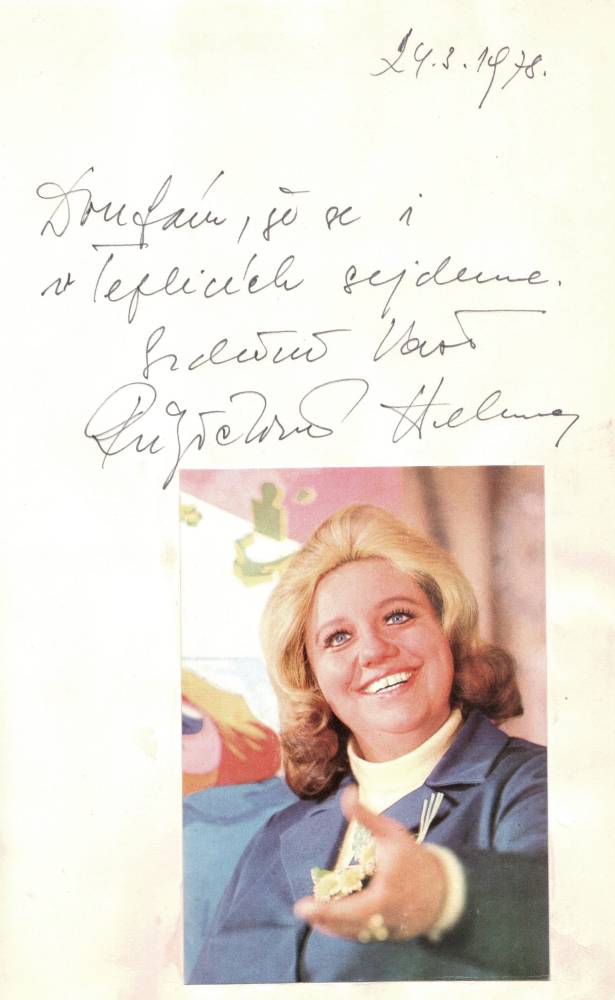 24.3.1978.
Doufám, že se i
v Teplicích sejdeme.
Srdečně Vaše
Růžičková Helena